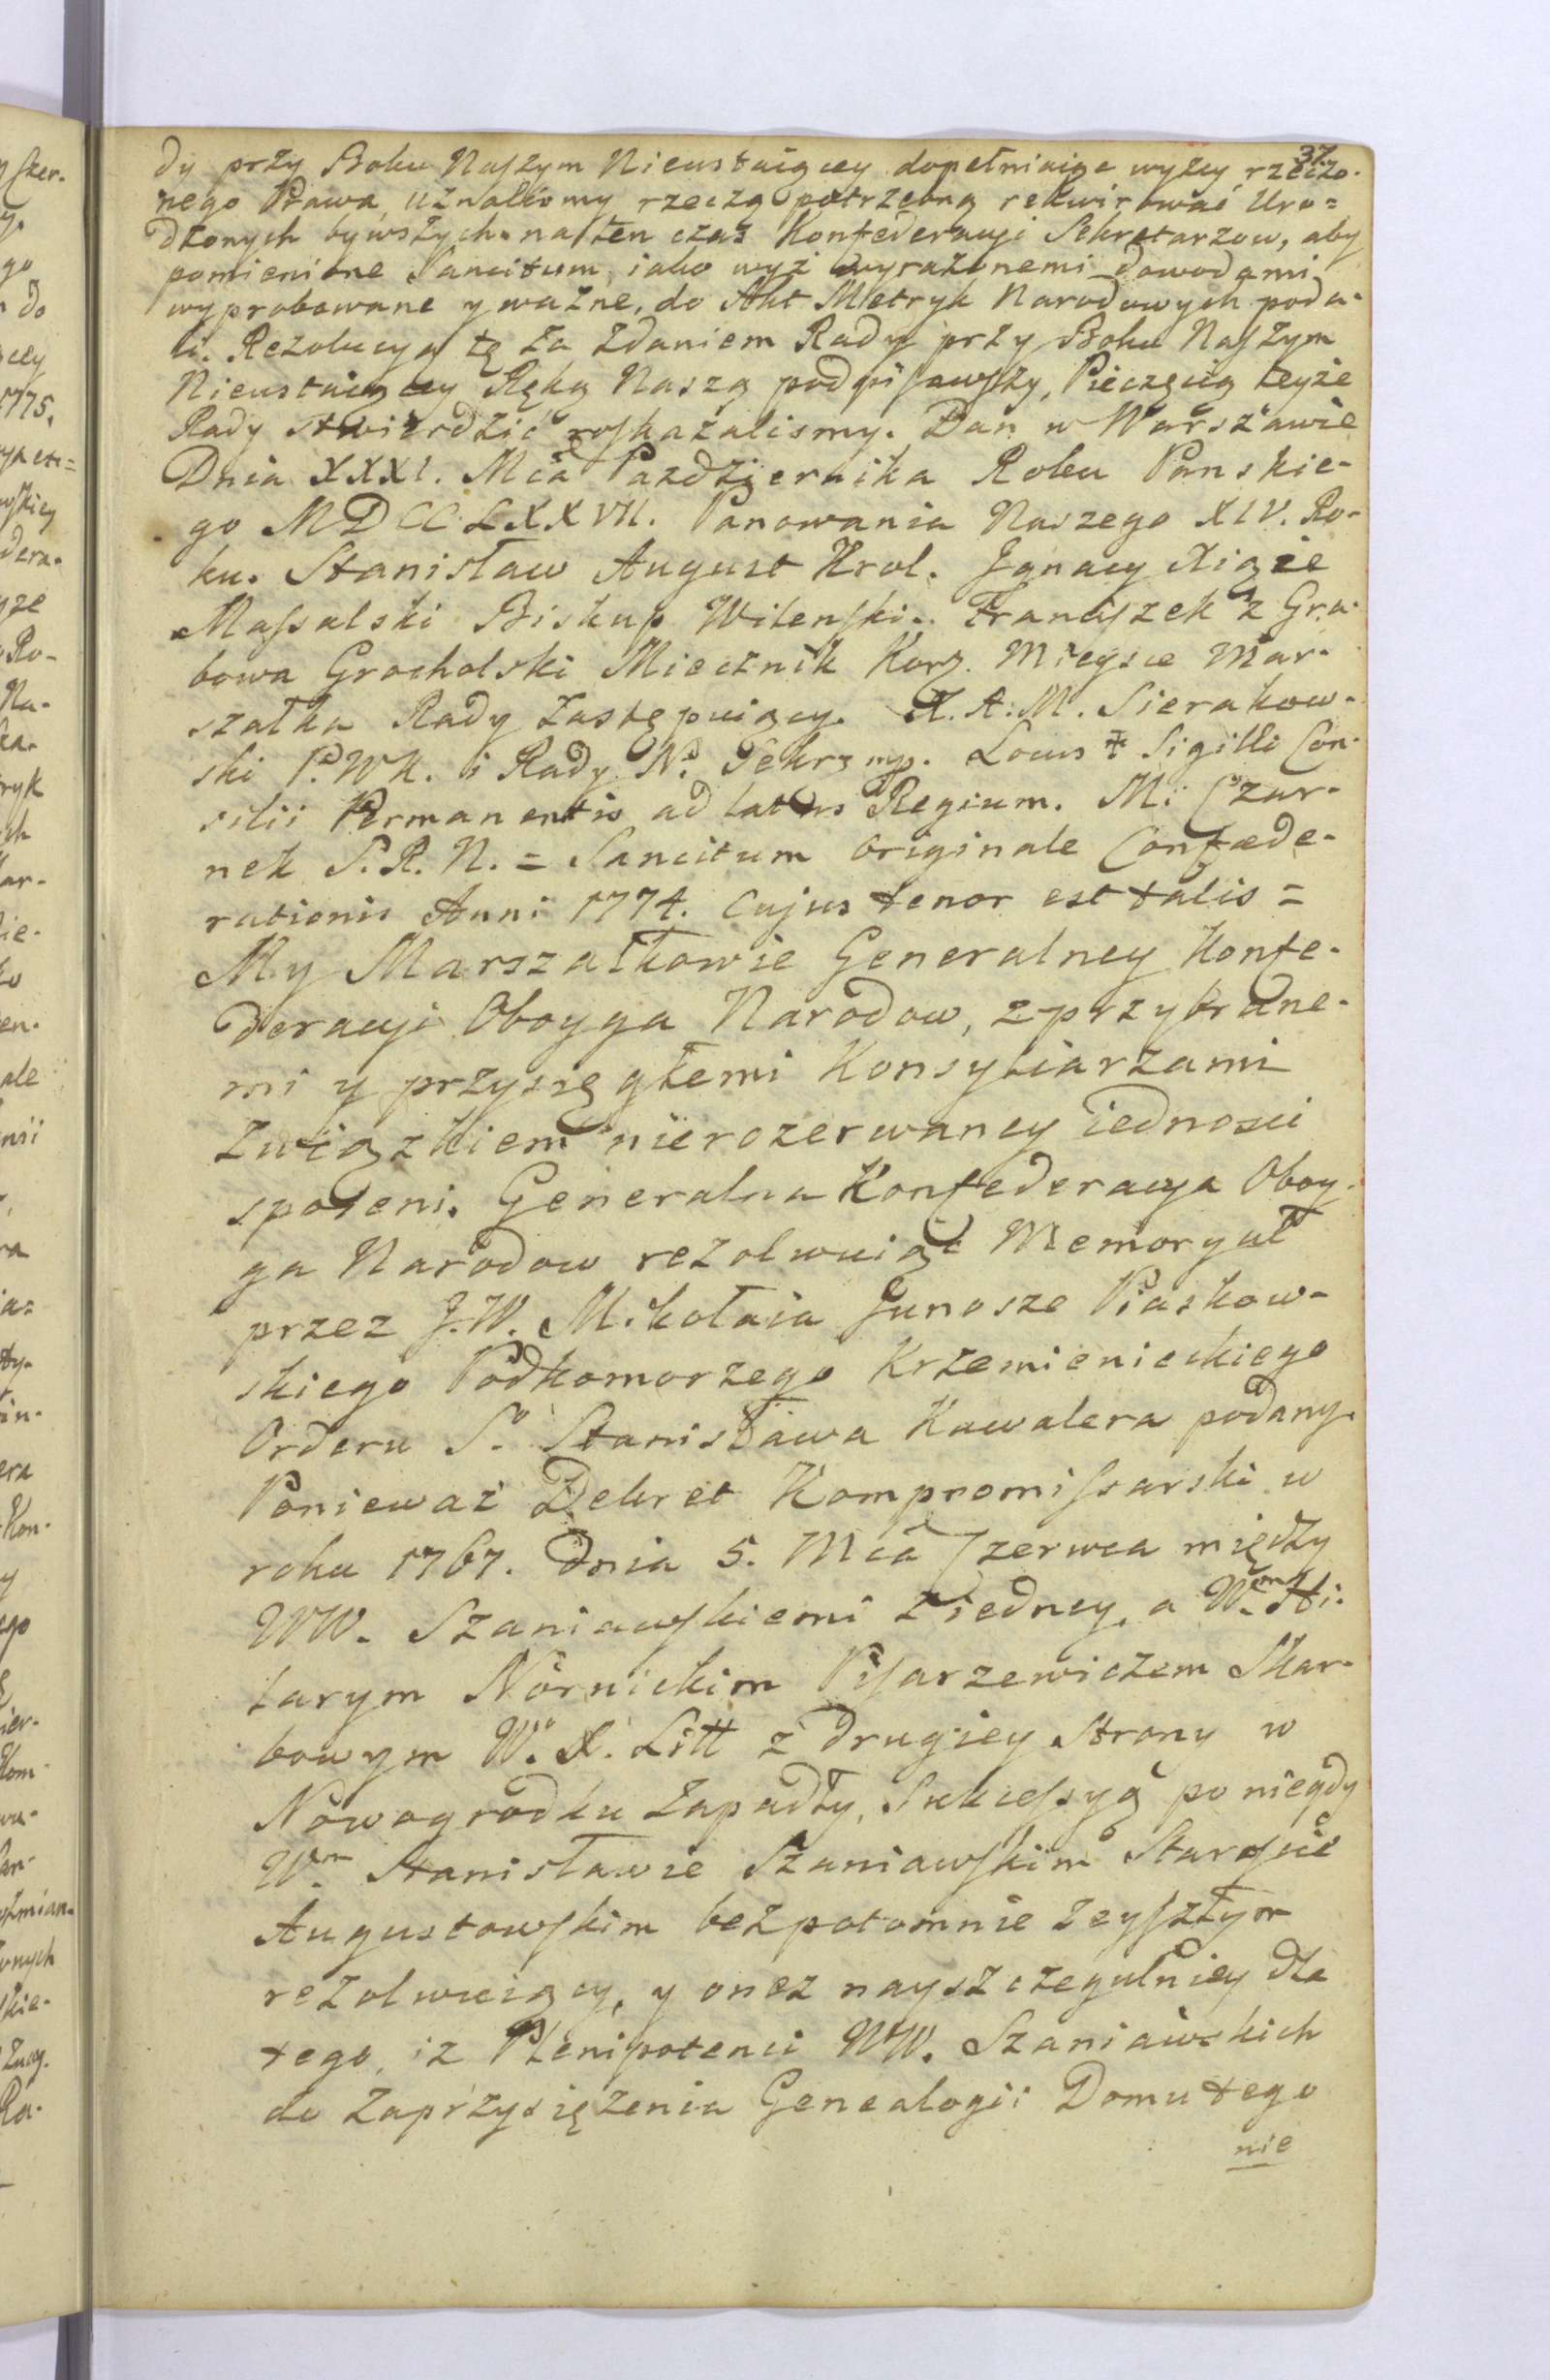 37
dy przy Boku Naszym Nieustaiącey dopełniaiąc wyżey rzeczo-
nego Prawa, uznalismy rzeczą potrzebną rekwirować Uro=
dzonych bywszych na ten czas Konfederacyi Sekretarzow, aby
pomienione Sancitum, iako wyż wyrażonemi dowodami
wyprobowane y ważne, do Akt Metryk Narodowych poda-
li. Rezolucyą tę za zdaniem Rady przy Boku Naszym
Nieustaiącey Ręką Naszą podpisawszy, Pieczęcią teyże
Rady stwierdzić roskazalismy. Dan w Warszawie
Dnia XXXI. Mca Pazdziernika Roku Panskie-
go MDCCLXXVII. Panowania Naszego XIV. Ro-
ku. Stanisław August Krol. Jgnacy Xiąże
Massalski Biskup Wilenski. Franciszek z Gra-
bowa Grocholski Miecznik Korg. Mieysce Mar-
szałka Rady zastępuiący. K. A. M. Sierakow-
ski P. W K. i Rady N. Sekrz mp. Locus ‡ Sigilli Con-
silii Permanentis ad latus Regium. M. Czar-
nek S. R. N. = Sancitum Originale Confæde-
rationis Anni 1774. cujus tenor est talis =
My Marszałkowie Generalney Konfe-
deracyi Oboyga Narodow, z przybrane-
mi y przysięgłemi Konsyliarzami
Związkiem nierozerwaney iednosci
spoieni. Generalna Konfederacya Oboy-
ga Narodow rezolwuiąc Memoryał
przez J.W. Mikołaia Junosze Piaskow-
skiego Podkomorzego Krzemienieckiego
Orderu S. Stanisława Kawalera podany.
Ponieważ Dekret Kompromissarski w
roku 1767. Dnia 5. Mca Czerwca między
WW. Szaniawskiemi z iedney, a W.m Hi-
larym Nornickim Pisarzewiczem Skar-
bowym W. X. Litt z drugiey Strony w
Nowogrodku zapadły, Sukcessyą po niegdy
W.m Stanisławie Szaniawskim Staroscie
Augustowskim bezpotomnie zeyszłym
rezolwuiący, y onez nayszczegulniey dla
tego, iz Plenipotenci WW. Szaniawskich
do zaprzysiężenia Genealogii Domu tego
nie